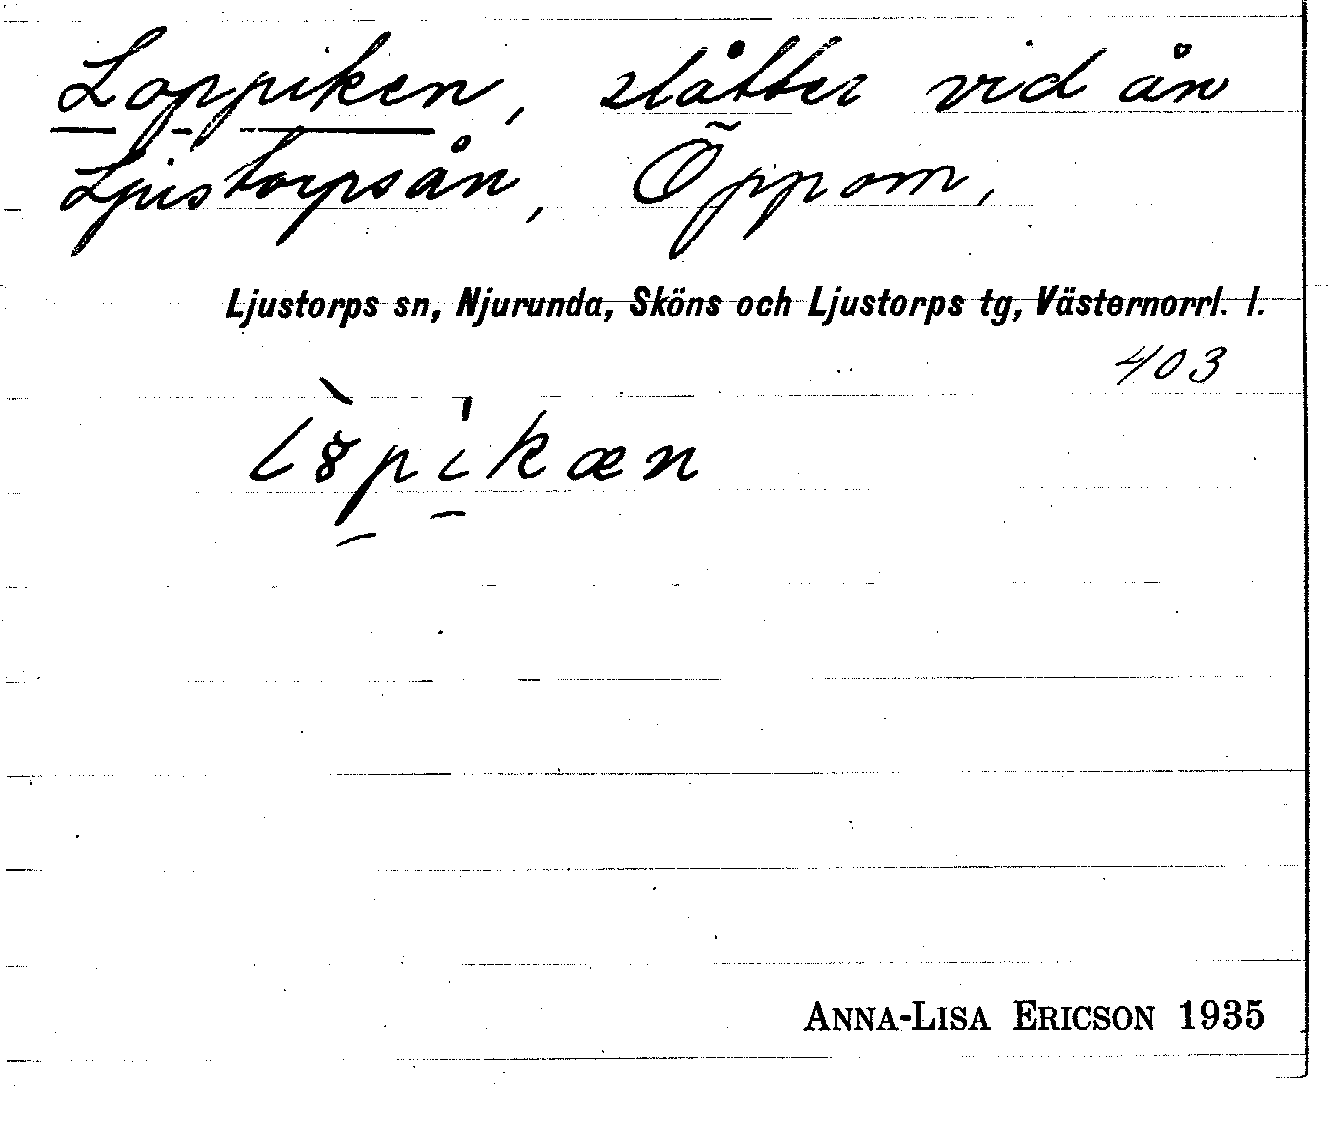 Loppiken, slåtter vid ån
Ljustorpsån, Öppom,
Ljustorps sn, Njurunda, Sköns och Ljustorps tg, Västernorrl. l.
403
l8̀pikæn
ANNA-LISA ERICSON 1935